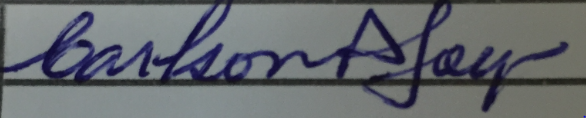 Carlson A Jay